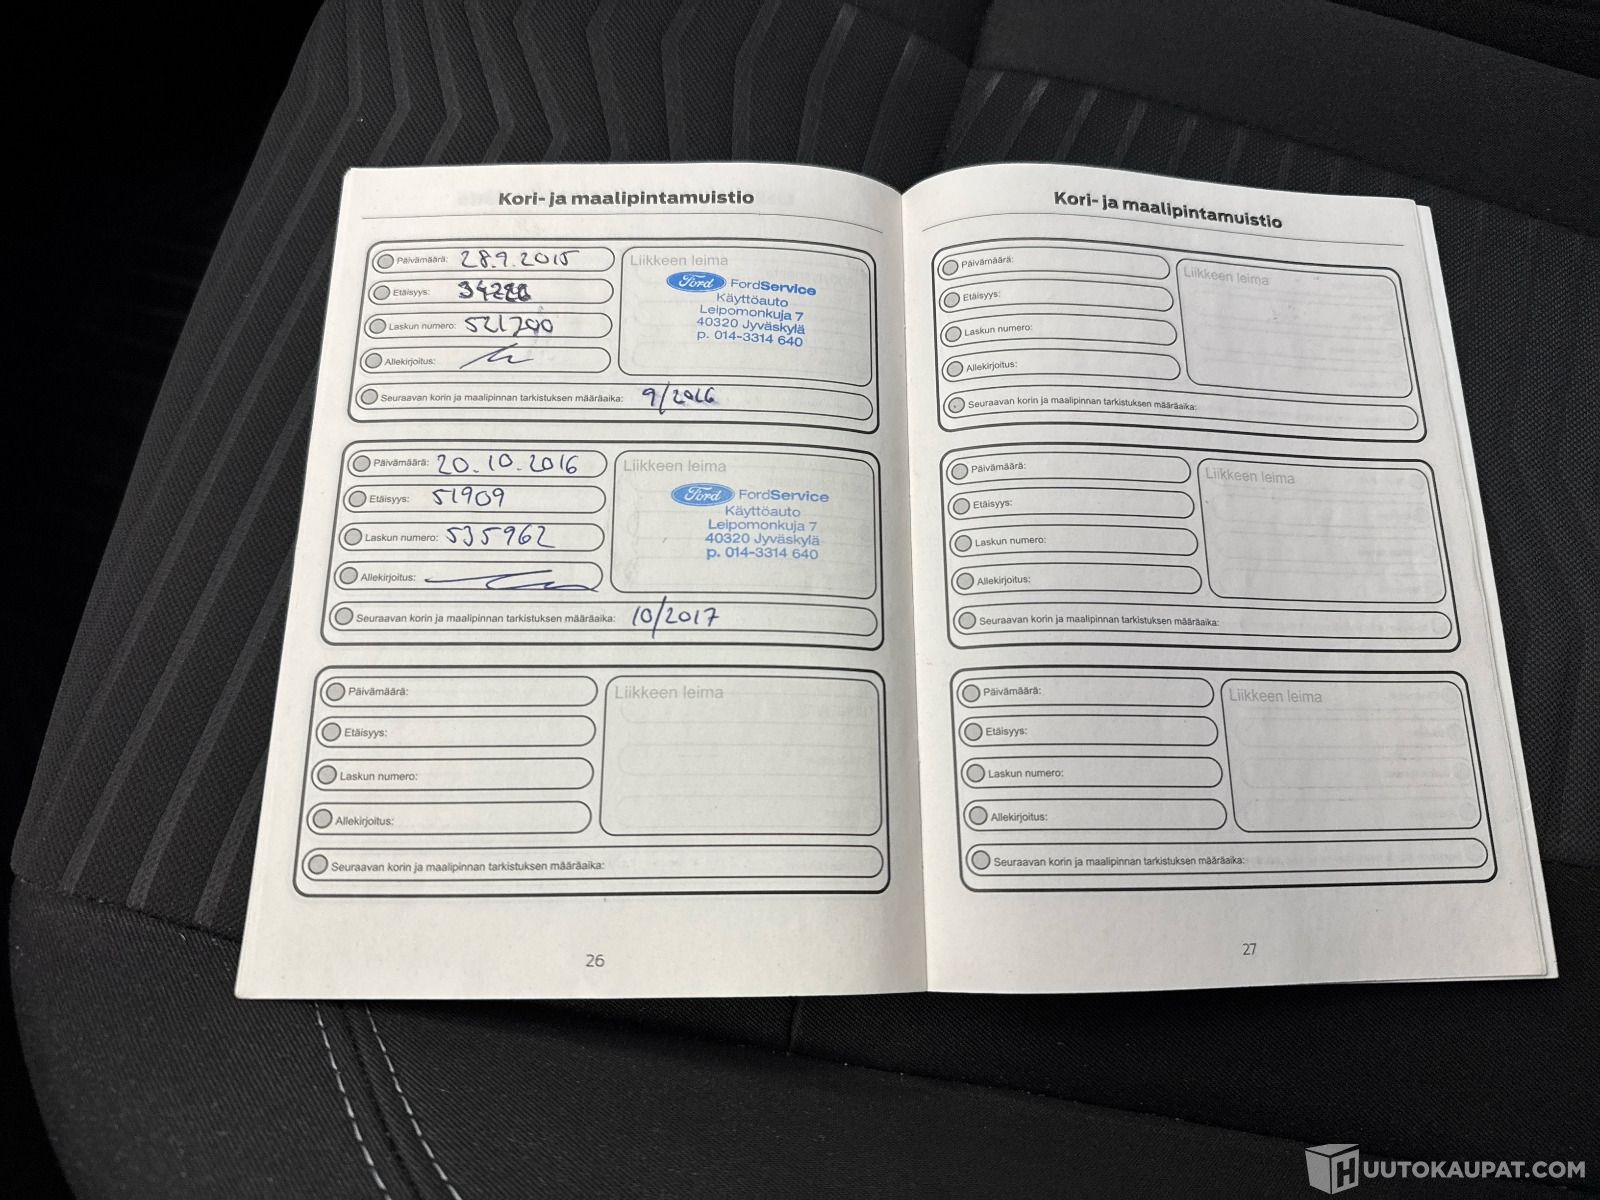 Kori- ja maalipintamuistio
Päivämäärä: 28.9.2015
Etäisyys:
Laskun numero: 521200
Allekirjoitus:
Liikkeen leima
Ford FordService
Käyttöauto
Leipomonkuja 7
40320 Jyväskylä
p. 014-3314 640
Seuraavan korin ja maalipinnan tarkistuksen määräaika: 9/2016
Päivämäärä: 20.10.2016
Etäisyys: 51909
Laskun numero: 535962
Allekirjoitus:
Liikkeen leima
Ford FordService
Käyttöauto
Leipomonkuja 7
40320 Jyväskylä
p. 014-3314 640
Seuraavan korin ja maalipinnan tarkistuksen määräaika: 10/2017
Päivämäärä:
Etäisyys:
Laskun numero:
Allekirjoitus:
Liikkeen leima
Seuraavan korin ja maalipinnan tarkistuksen määräaika:
26
Kori- ja maalipintamuistio
Päivämäärä:
Etäisyys:
Laskun numero:
Allekirjoitus:
Liikkeen leima
Seuraavan korin ja maalipinnan tarkistuksen määräaika:
Päivämäärä:
Etäisyys:
Laskun numero:
Allekirjoitus:
Liikkeen leima
Seuraavan korin ja maalipinnan tarkistuksen määräaika:
Päivämäärä:
Etäisyys:
Laskun numero:
Allekirjoitus:
Liikkeen leima
Seuraavan korin ja maalipinnan tarkistuksen määräaika:
27
HUUTOKAUPAT.COM